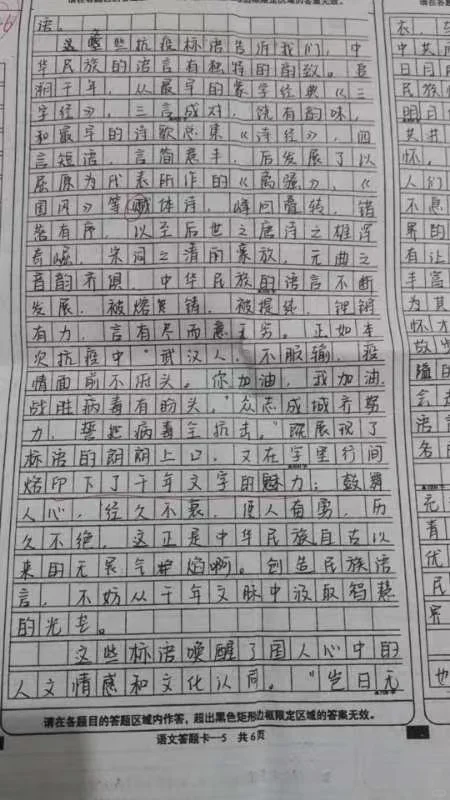 请在各题目的答题区域内作答，超出黑色矩形边框限定区域的答案无效。
语。
这些抗疫标语告诉我们，中
华民族的语言有独特的韵致。追
溯千年，从最早的蒙学经典《三
字经》，三言成对，饶有韵味，
和最早的诗歌总集《诗经》，四
言短语，言简意丰，后发展了以
屈原为代表所作的《离骚》，《
国风》等骚体诗，峰回叠转，错
落有序，以至后世之唐诗之雄浑
奇崛，宋词之清丽豪放，元曲之
音韵齐俱，中华民族的语言不断
发展，被熔铸，被提纯，铿锵
有力，言有尽而意无穷。正如本
次抗疫中"武汉人，不服输，疫
情面前不低头。你加油，我加油，
战胜病毒有盼头。"众志成城齐努
力，誓把病毒全抗击。"既展现了
标语的朗朗上口，又在字里行间
烙印下了千年文字的魅力；鼓舞
人心，经久不衰，使人奋勇，历
久不绝，这正是中华民族自古以
来的无畏气焰啊。创造民族语
言，不妨从千年文脉中汲取智慧
的光芒。
这些标语唤醒了国人心中的
人文情感和文化认同。"岂曰无
请在各题目的答题区域内作答，超出黑色矩形边框限定区域的答案无效。
语文答题卡—5 共6页
衣，
中共
日月
民族
明月
共扌
怀。
人们
不愿
界的
有让
丰富
为其
怀才
故
隘的
会
语言
务
元
青
优
民
界
也